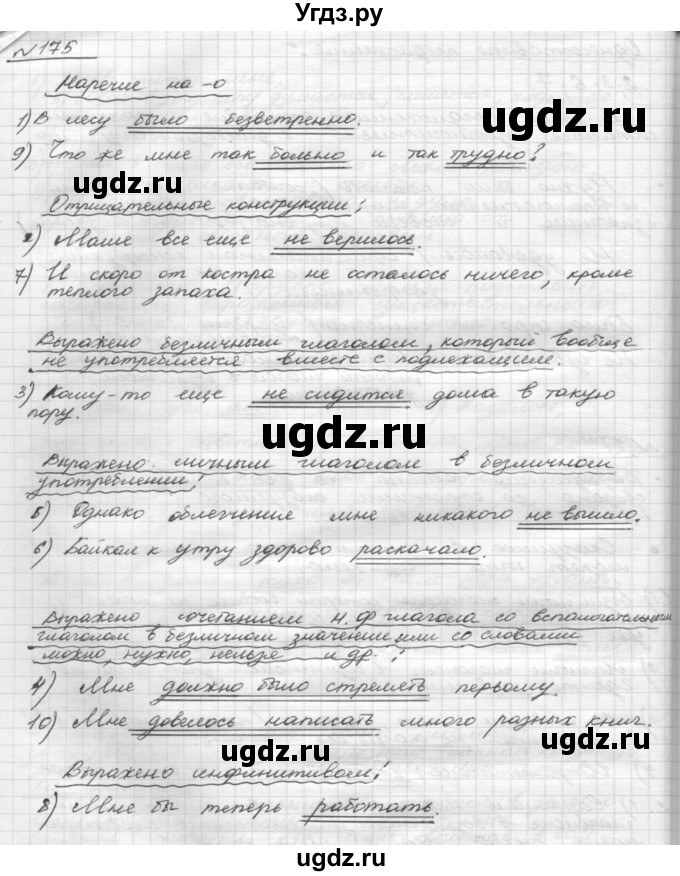 Угдз.ру
№175
Наречие на -о
1) В лесу было безветренно.
9) Что же мне так больно и так трудно?
Отрицательные конструкции:
2) Маше все еще не верилось.
7) И скоро от костра не осталось ничего, кроме
теплого запаха.
Выражено безличным глаголом, который вообще
не употребляется вместе с подлежащим.
3) Кому-то еще не сидится дома в такую
пору.
Выражено личным глаголом в безличном
употреблении:
5) Однако облегчение мне никакого не вышло.
6) Байкал к утру здорово раскачало.
Выражено сочетанием н.ф глагола со вспомогательным
глаголом в безличном значение или со словами
можно, нужно, нельзя и др:
4) Мне должно было стрелять первому.
10) Мне довелось написать много разных книг.
Выражено инфинитивом:
8) Мне бы теперь работать.
ugdz.ru
ugdz.ru
ugdz.ru
ugdz.ru
ugdz.ru
ugdz.ru
ugdz.ru
ugdz.ru